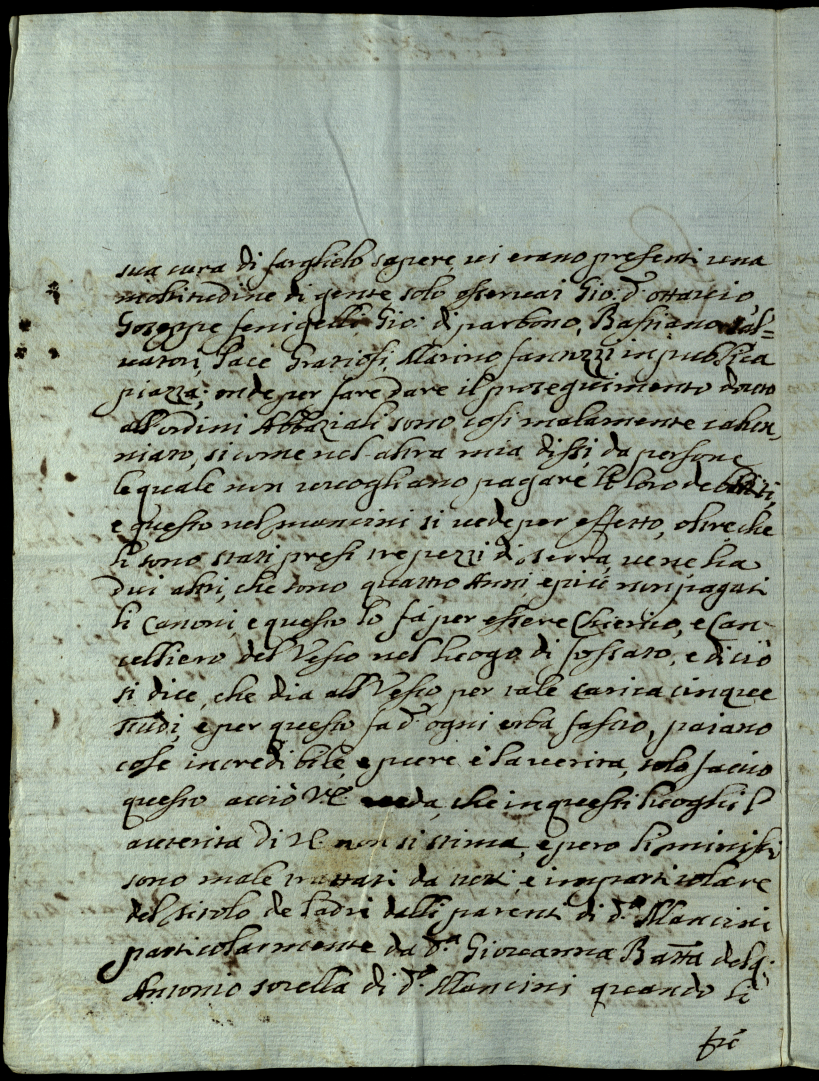 sua cura di farglielo sapere, vi erano presenti una
moltitudine di gente solo osservai Gio: d'ottavio
Goseppe fenigelli, Gio: di partono, Bastiano Sal=
vatori, Pace Gratiosi, Marino fantozzi in publica
piazza; onde per fare dare il proseguimento
all'ordini Abbaziali sono cosi malamente calun,
niato, si come nel altra mia dissi, da persone
le quale non vogliano pagare li loro debiti,
e questo nel mancini si vede per effetto, oltre che
li sono stati presi tre pezzi di terra, ve ne ha
dui altri, che sono quattro Anni e più non pagati
li Canoni e questo lo fá per essere Chierico, e Can-
celliero del Vesco nel luogo di fossato, e di ciò
si dice, che dia all Vesco per tale carica cinque
scudi, e per questo fa d'ogni erba fascio, paiano
cose incredibile, e puere è la verita, solo faccio
questo acciò VE veda, che in questi luoghi l
auterita di VE non si stima, e pero li ministri
sono male trattati da tutti, e imparticolare
del titolo de ladri dalli parenti di do Mancini
particolarmente da da Gioveanna Batta del q:
Antonio sorella di do Mancini quando li